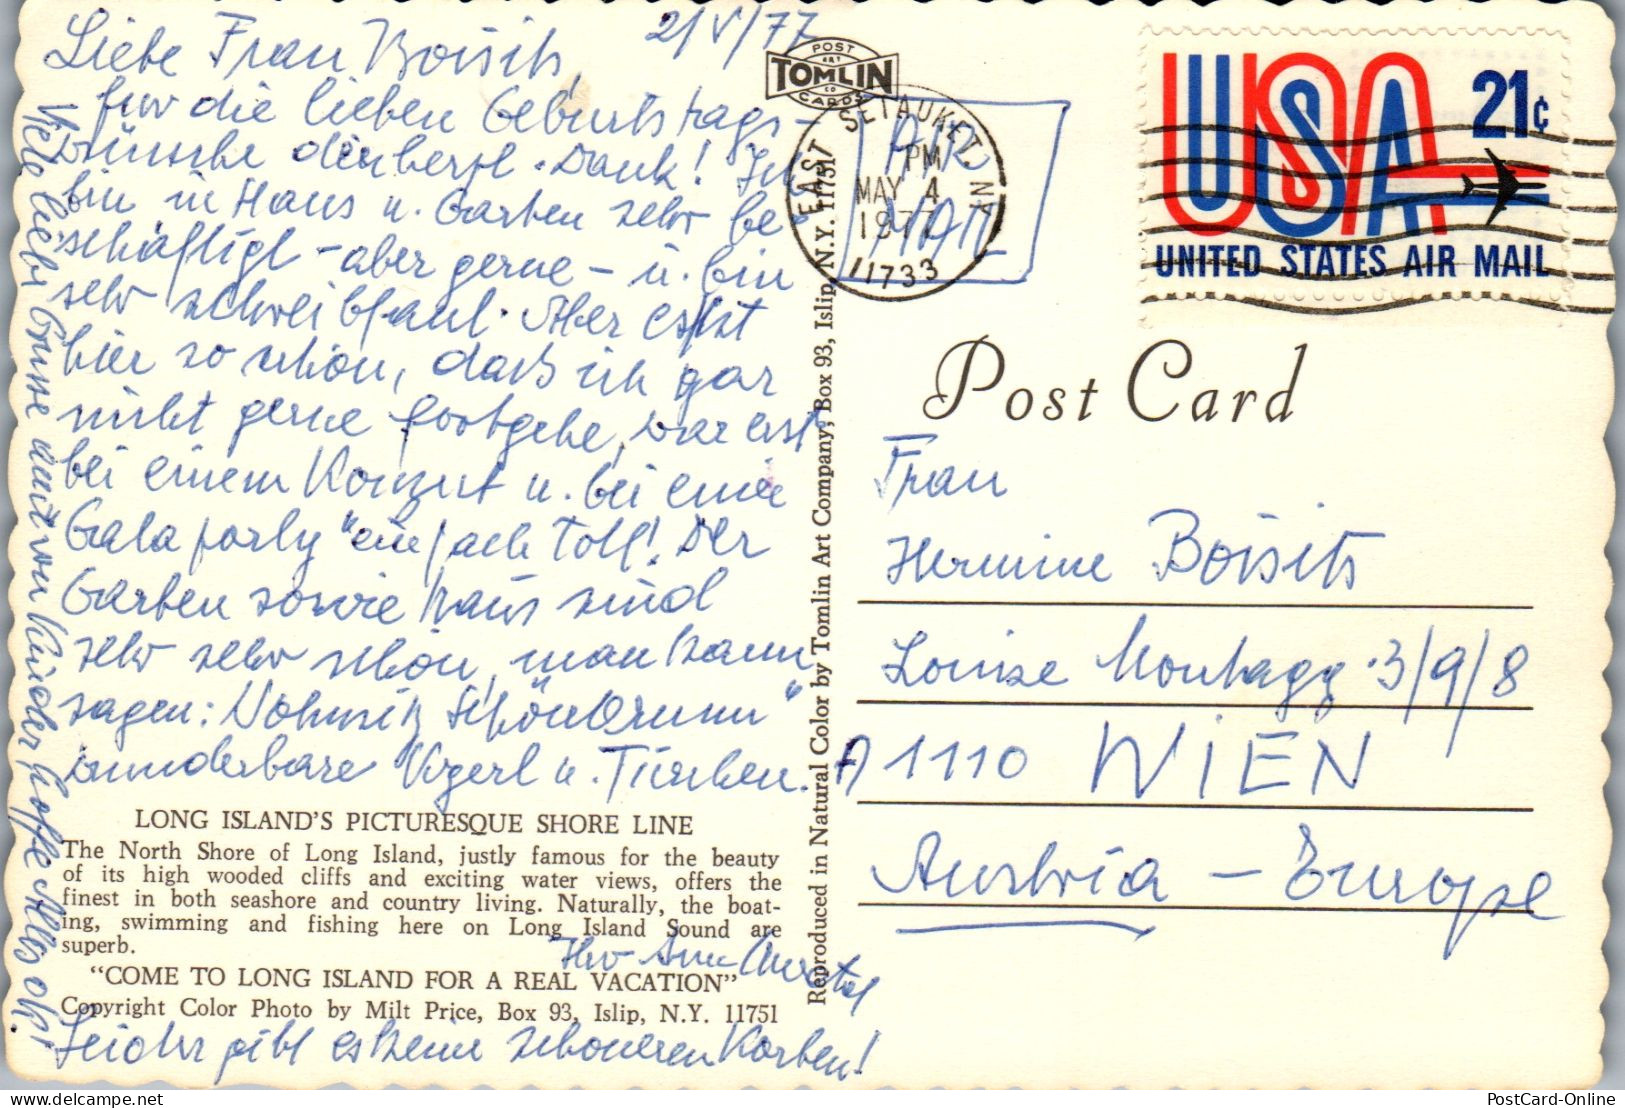 2/V/77
Liebe Frau Boisits,
für die lieben Geburtstags-
wünsche herzl. Dank! Ich
bin in Haus u. Garten sehr be-
schäftigt - aber gerne - u. bin
sehr schreibfaul. Aber es ist
hier so schön, dass ich gar
nicht gerne fortgehe, war erst
bei einem Konzert u. bei einer
Gala party "einfach toll! Der
Garten sowie Haus sind
sehr sehr schön, man kann
sagen: Wohnsitz Schönbrunn"
wunderbare Vogerl u. Tierchen.
Viele liebe Grüsse auch von Kinder, hoffe Alles ok!
LONG ISLAND'S PICTURESQUE SHORE LINE
The North Shore of Long Island, justly famous for the beauty
of its high wooded cliffs and exciting water views, offers the
finest in both seashore and country living. Naturally, the boat-
ing, swimming and fishing here on Long Island Sound are
superb.
"COME TO LONG ISLAND FOR A REAL VACATION"
Copyright Color Photo by Milt Price, Box 93, Islip, N.Y. 11751
Leider gibt es keine schöneren Karten!
Reproduced in Natural Color by Tomlin Art Company, Box 93, Islip, N.Y. 11751
POST
ART
TOMLIN
CO
CARDS
EAST SETAUKET, NY
PM
MAY 4
1977
11733
AIR
MAIL
USA
21¢
UNITED STATES AIR MAIL
Post Card
Frau
Hermine Boisits
Louise Montagg. 3/9/8
A 1110 WIEN
Austria - Europe
PostCard-Online